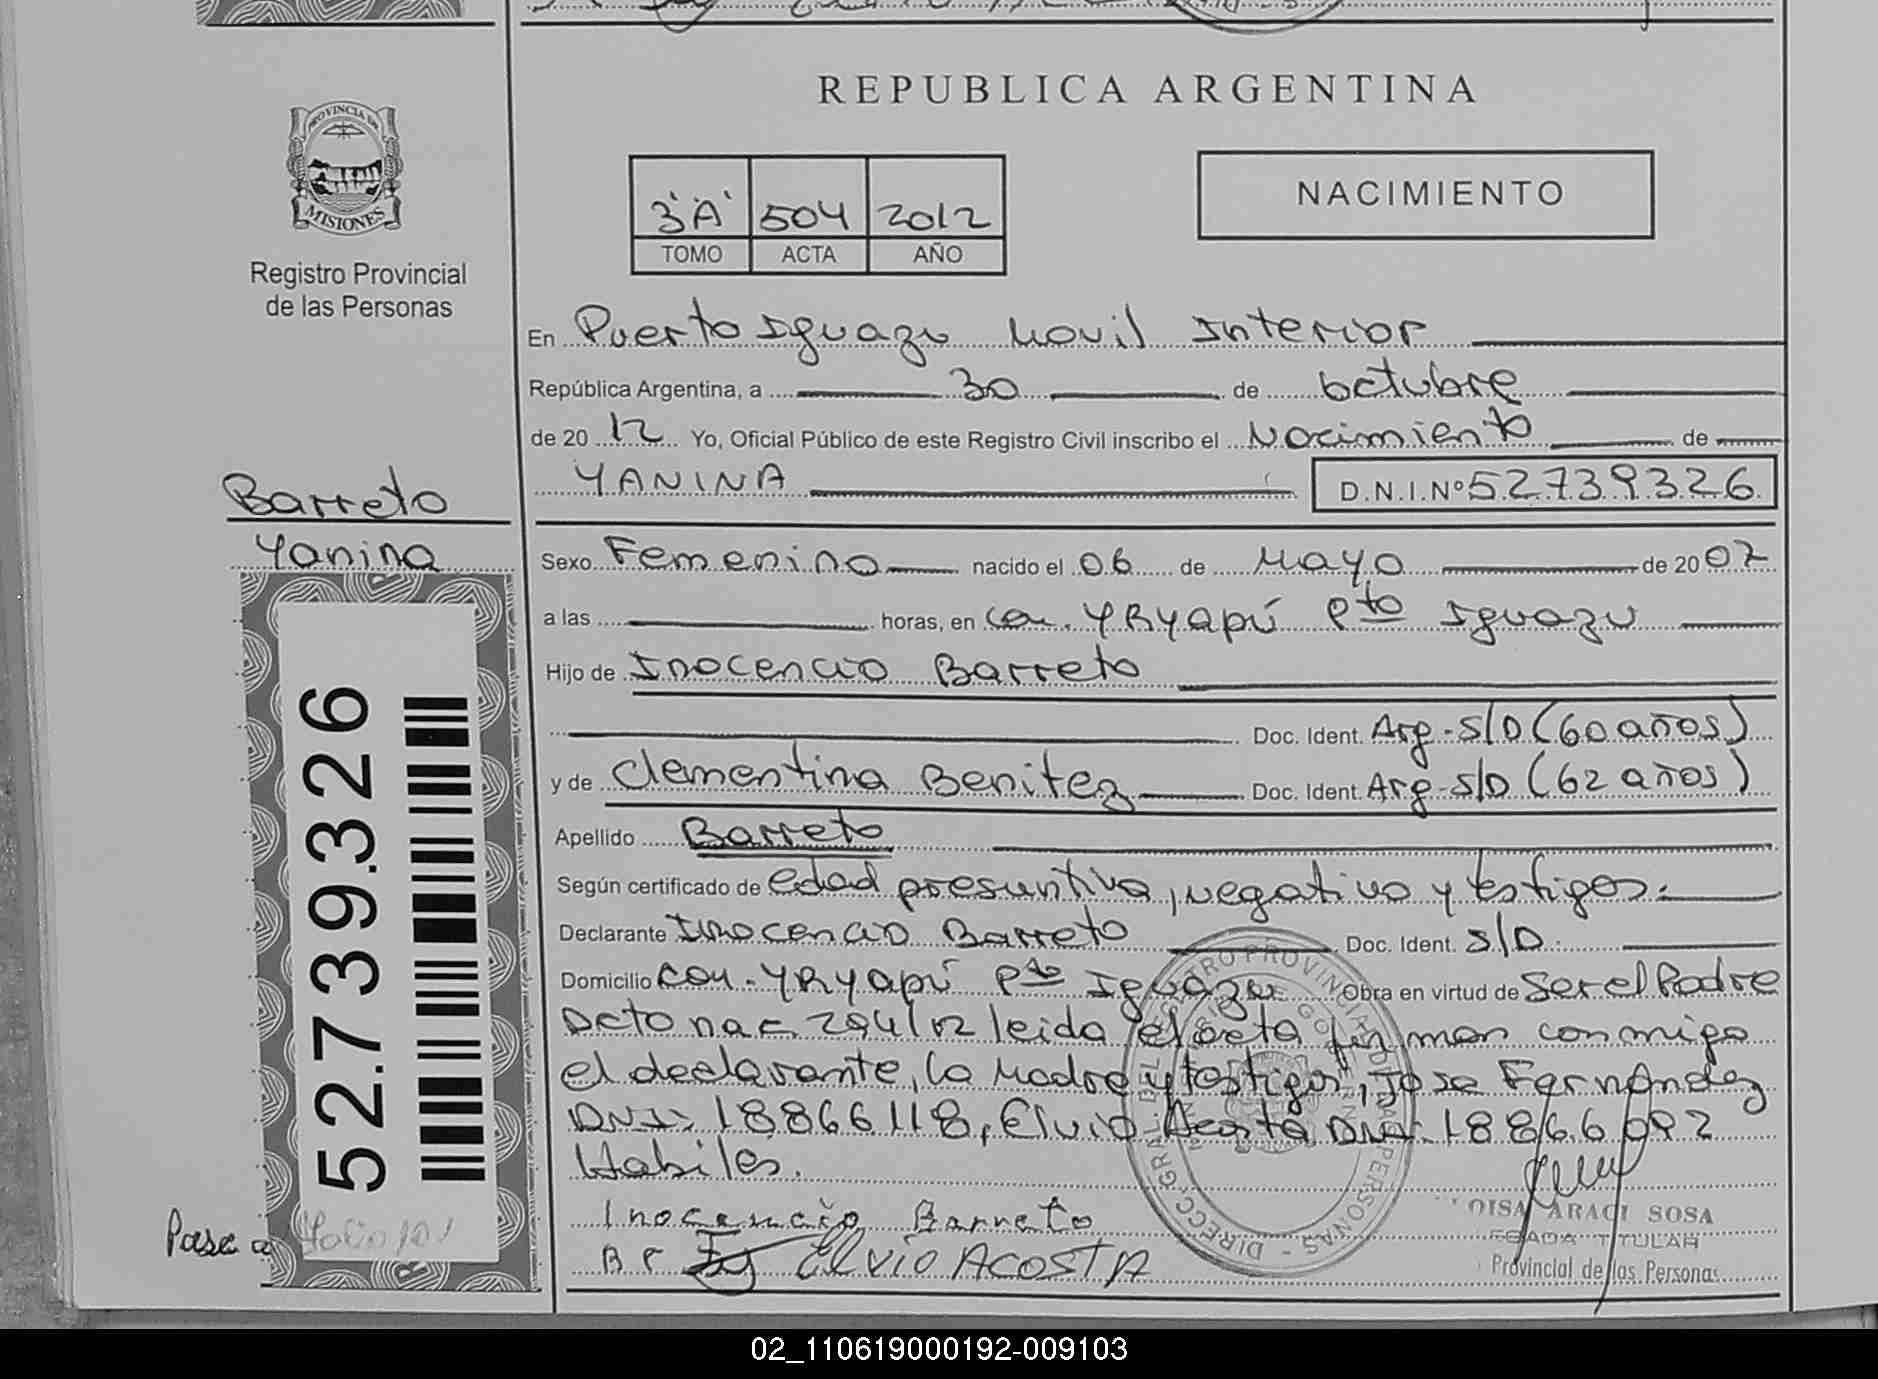 REPUBLICA ARGENTINA
PROVINCIA DE
MISIONES
Registro Provincial
de las Personas
3'A' 504 2012
TOMO ACTA AÑO
NACIMIENTO
En Puerto Iguazu Movil Interior
República Argentina, a 30 de octubre
de 2012 Yo, Oficial Público de este Registro Civil inscribo el Nacimiento de
YANINA D.N.I.Nº 52739326
Barreto
Yanina
Sexo Femenino nacido el 06 de Mayo de 2007
a las horas, en Com. YRYapú Pto Iguazu
Hijo de Inocencio Barreto
Doc. Ident. Arg-S/D (60 años)
y de Clementina Benitez Doc. Ident. Arg-S/D (62 años)
Apellido Barreto
Según certificado de edad presuntiva, negativo y testigos.
Declarante Inocencio Barreto Doc. Ident. S/D.
Domicilio Com. YRYapú Pto Iguazu Obra en virtud de Ser el Padre
Dcto nac. 294/02 leida el acta firman conmigo
el declarante, la Madre y testigos, Jose Fernandez
DNI: 18866118, Elvio Acosta DNI: 18866092
Habiles.
Inocencio Barreto
B F Elvio ACOSTA
52.739.326
Pase a Folio 101
OISA ARACI SOSA
TITULAR
Provincial de las Personas
02_110619000192-009103